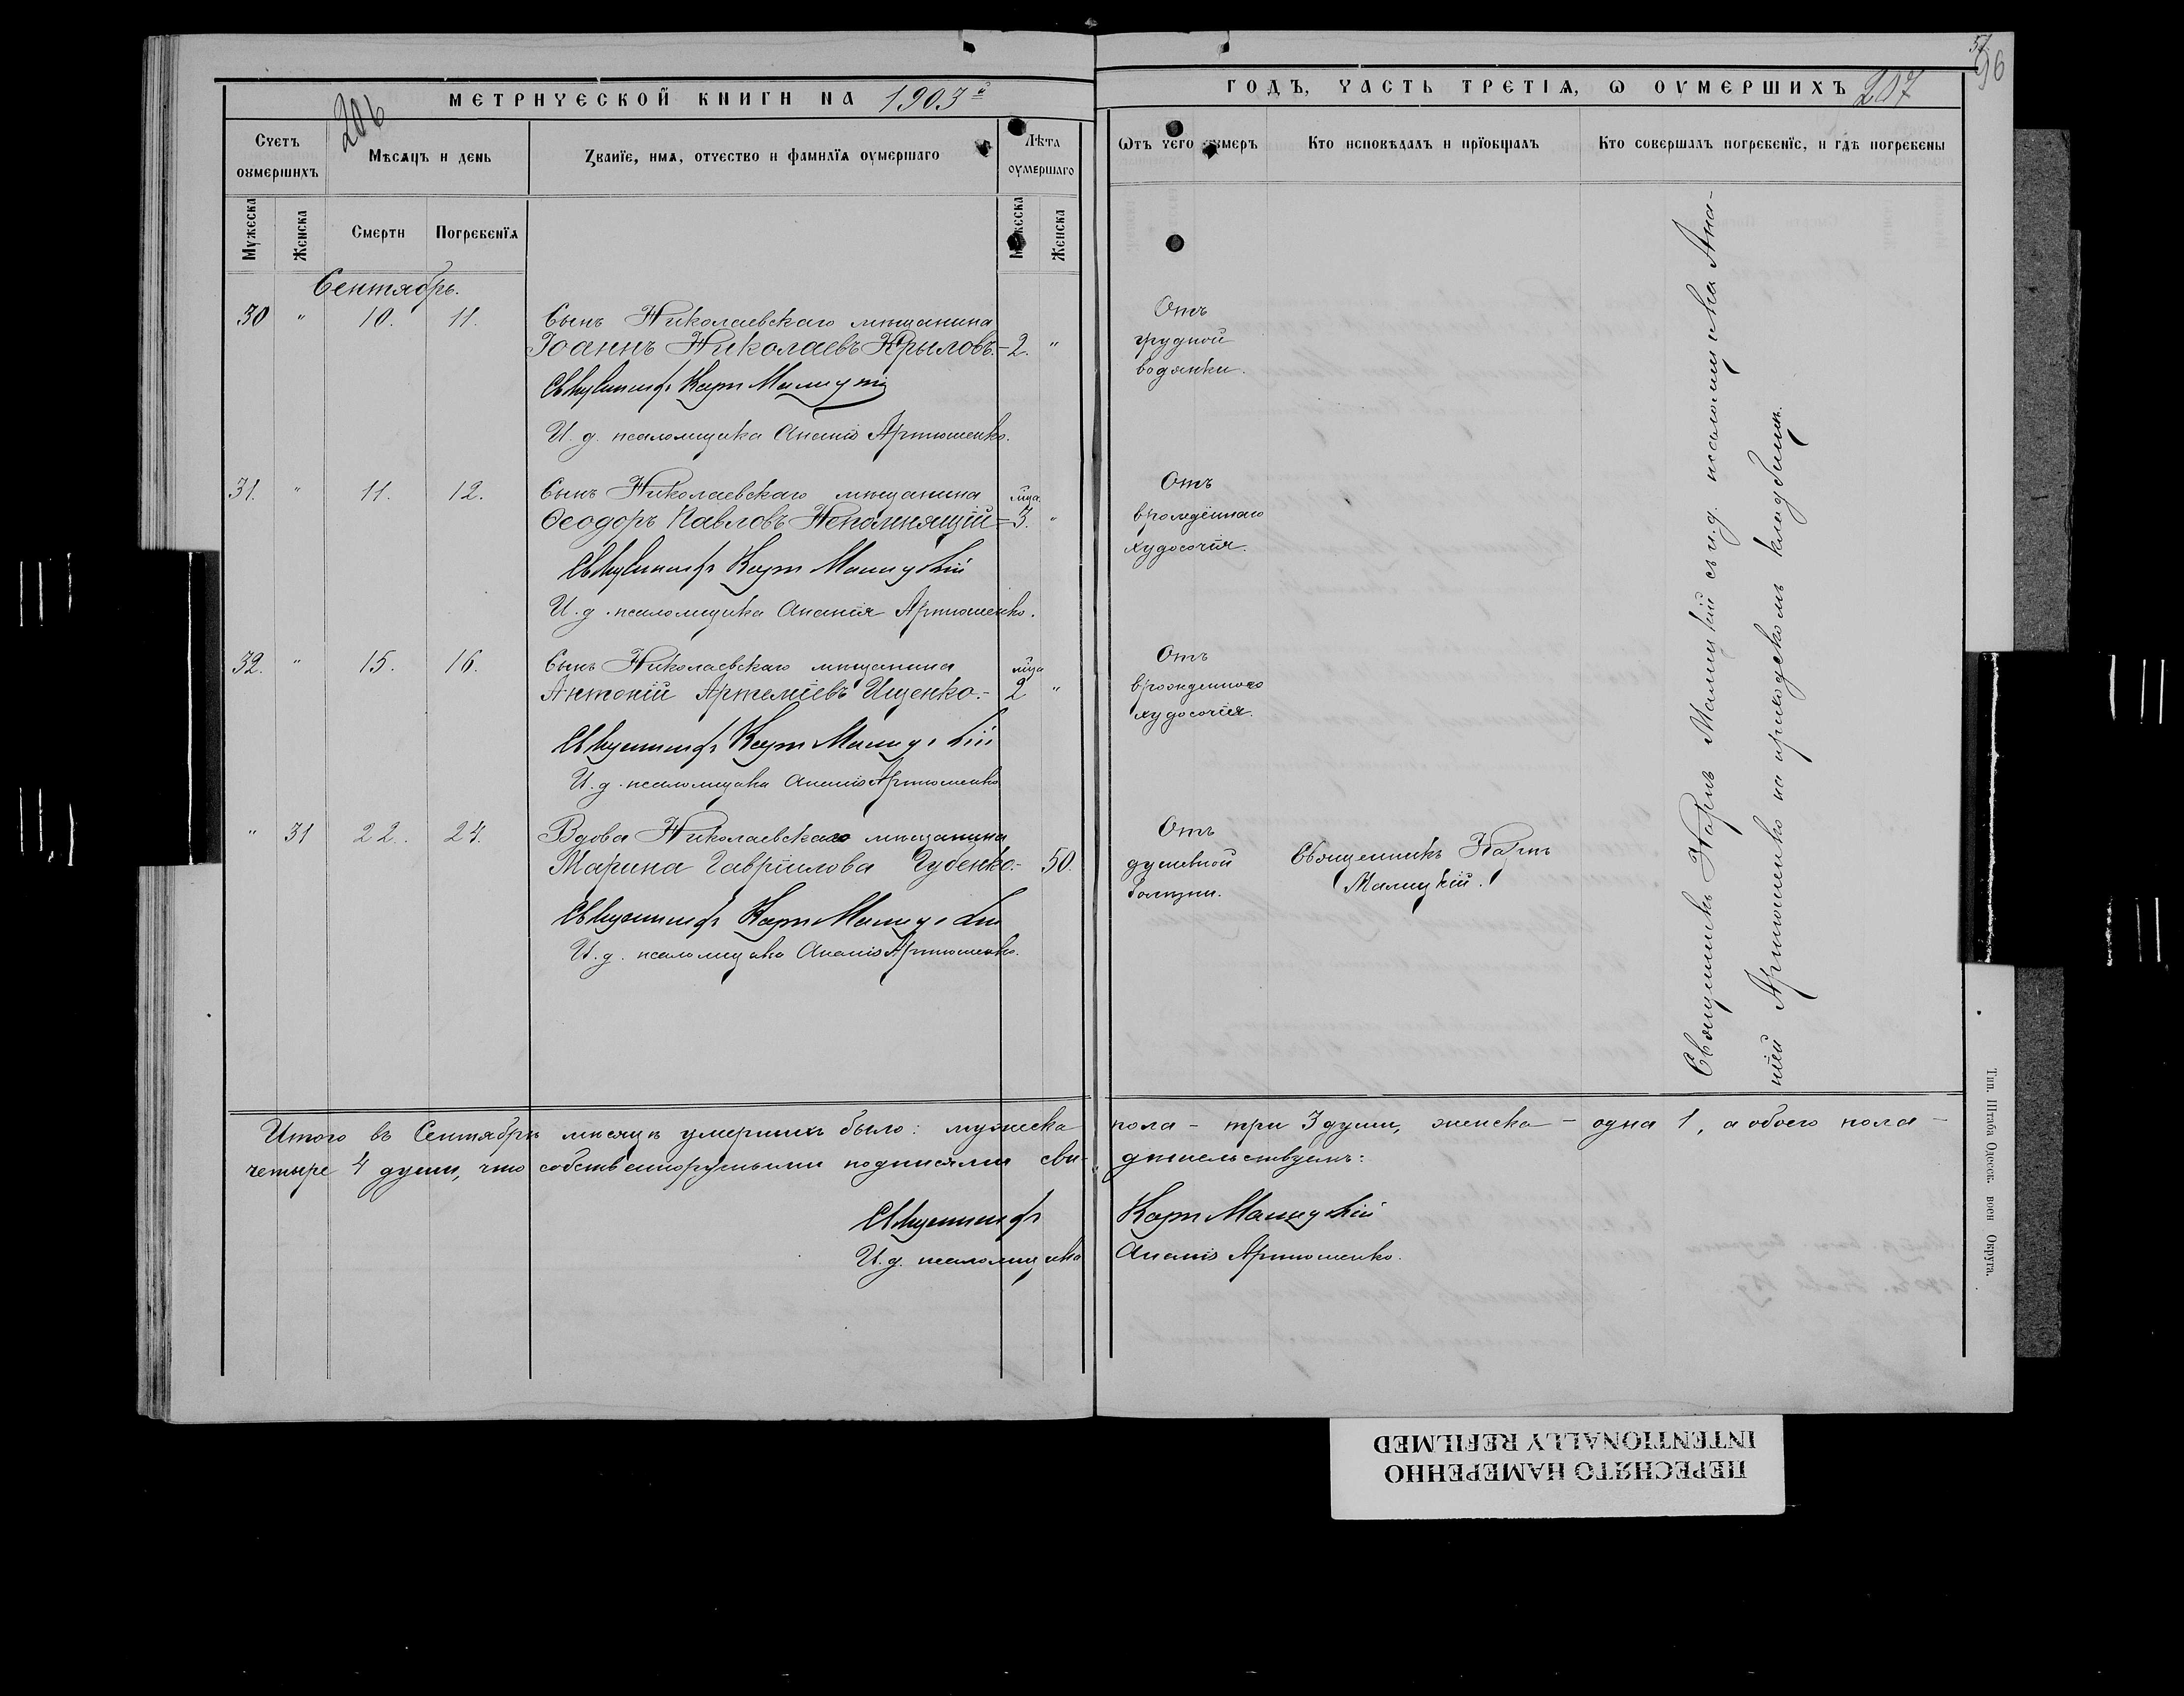 МЕТРИЧЕСКОЙ КНИГИ НА 1903й
206
Счетъ оумершихъ
Мѣсяцъ и день
Званїе, имя, отчество и фамилїя оумершаго
Лѣта оумершаго
Мужеска
Женска
Смерти
Погребенїя
Мужеска
Женска
Сентябрь.
30 " 10. 11. Сынъ Николаевскаго мѣщанина
Іоаннъ Николаевъ Крыловъ.- 2. "
Священникъ Карпъ Малицкій
И. д. псаломщика Ананія Артюшенко.
31. " 11. 12. Сынъ Николаевскаго мѣщанина мца.
Ѳеодоръ Павловъ Непомнящій= 3. "
Священникъ Карпъ Малицкій
И. д. псаломщика Ананія Артюшенко.
32. " 15. 16. Сынъ Николаевскаго мѣщанина мца
Антоній Артеміевъ Ищенко.- 2 "
Священникъ Карпъ Малицкій
И. д. псаломщика Ананія Артюшенко
" 31 22. 24. Вдова Николаевскаго мѣщанина
Марина Гавріилова Губенко.- 50.
Священникъ Карпъ Малицкій
И. д. псаломщика Ананія Артюшенко.
Итого въ Сентябрѣ мѣсяцѣ умершихъ было: мужеска
четыре 4 души, что собственноручными подписями сви-
Священникъ
И. д. псаломщика
96
ГОДЪ, ЧАСТЬ ТРЕТІЯ, Ѡ ОУМЕРШИХЪ 207
Ѿтъ чего оумеръ
Кто исповѣдалъ и прїобщалъ
Кто совершалъ погребенїе, и гдѣ погребены
Отъ
грудной
водянки.
Отъ
врожденнаго
худосочія.
Отъ
врожденнаго
худосочія.
Отъ
душевной
болѣзни.
Священникъ Карпъ
Малицкій.
Священникъ Карпъ Малицкій съ и.д. псаломщика Ана-
ніей Артюшенко на приходскомъ кладбищѣ.
пола - три 3 души, женска - одна 1, а обоего пола -
дѣтельствуемъ:
Карпъ Малицкій
Ананія Артюшенко.
Тип. Штаба Одесск. воен Округа.
ПЕРЕСНЯТО НАМЕРЕННО
INTENTIONALLY REFILMED